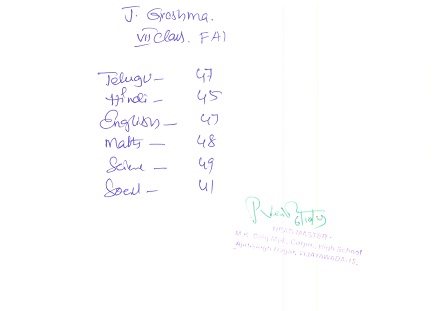 J. Greshma.
VII Class. FA1
Telugu - 47
Hindi - 45
English - 47
Maths - 48
Science - 49
Social - 41
HEAD MASTER
High School